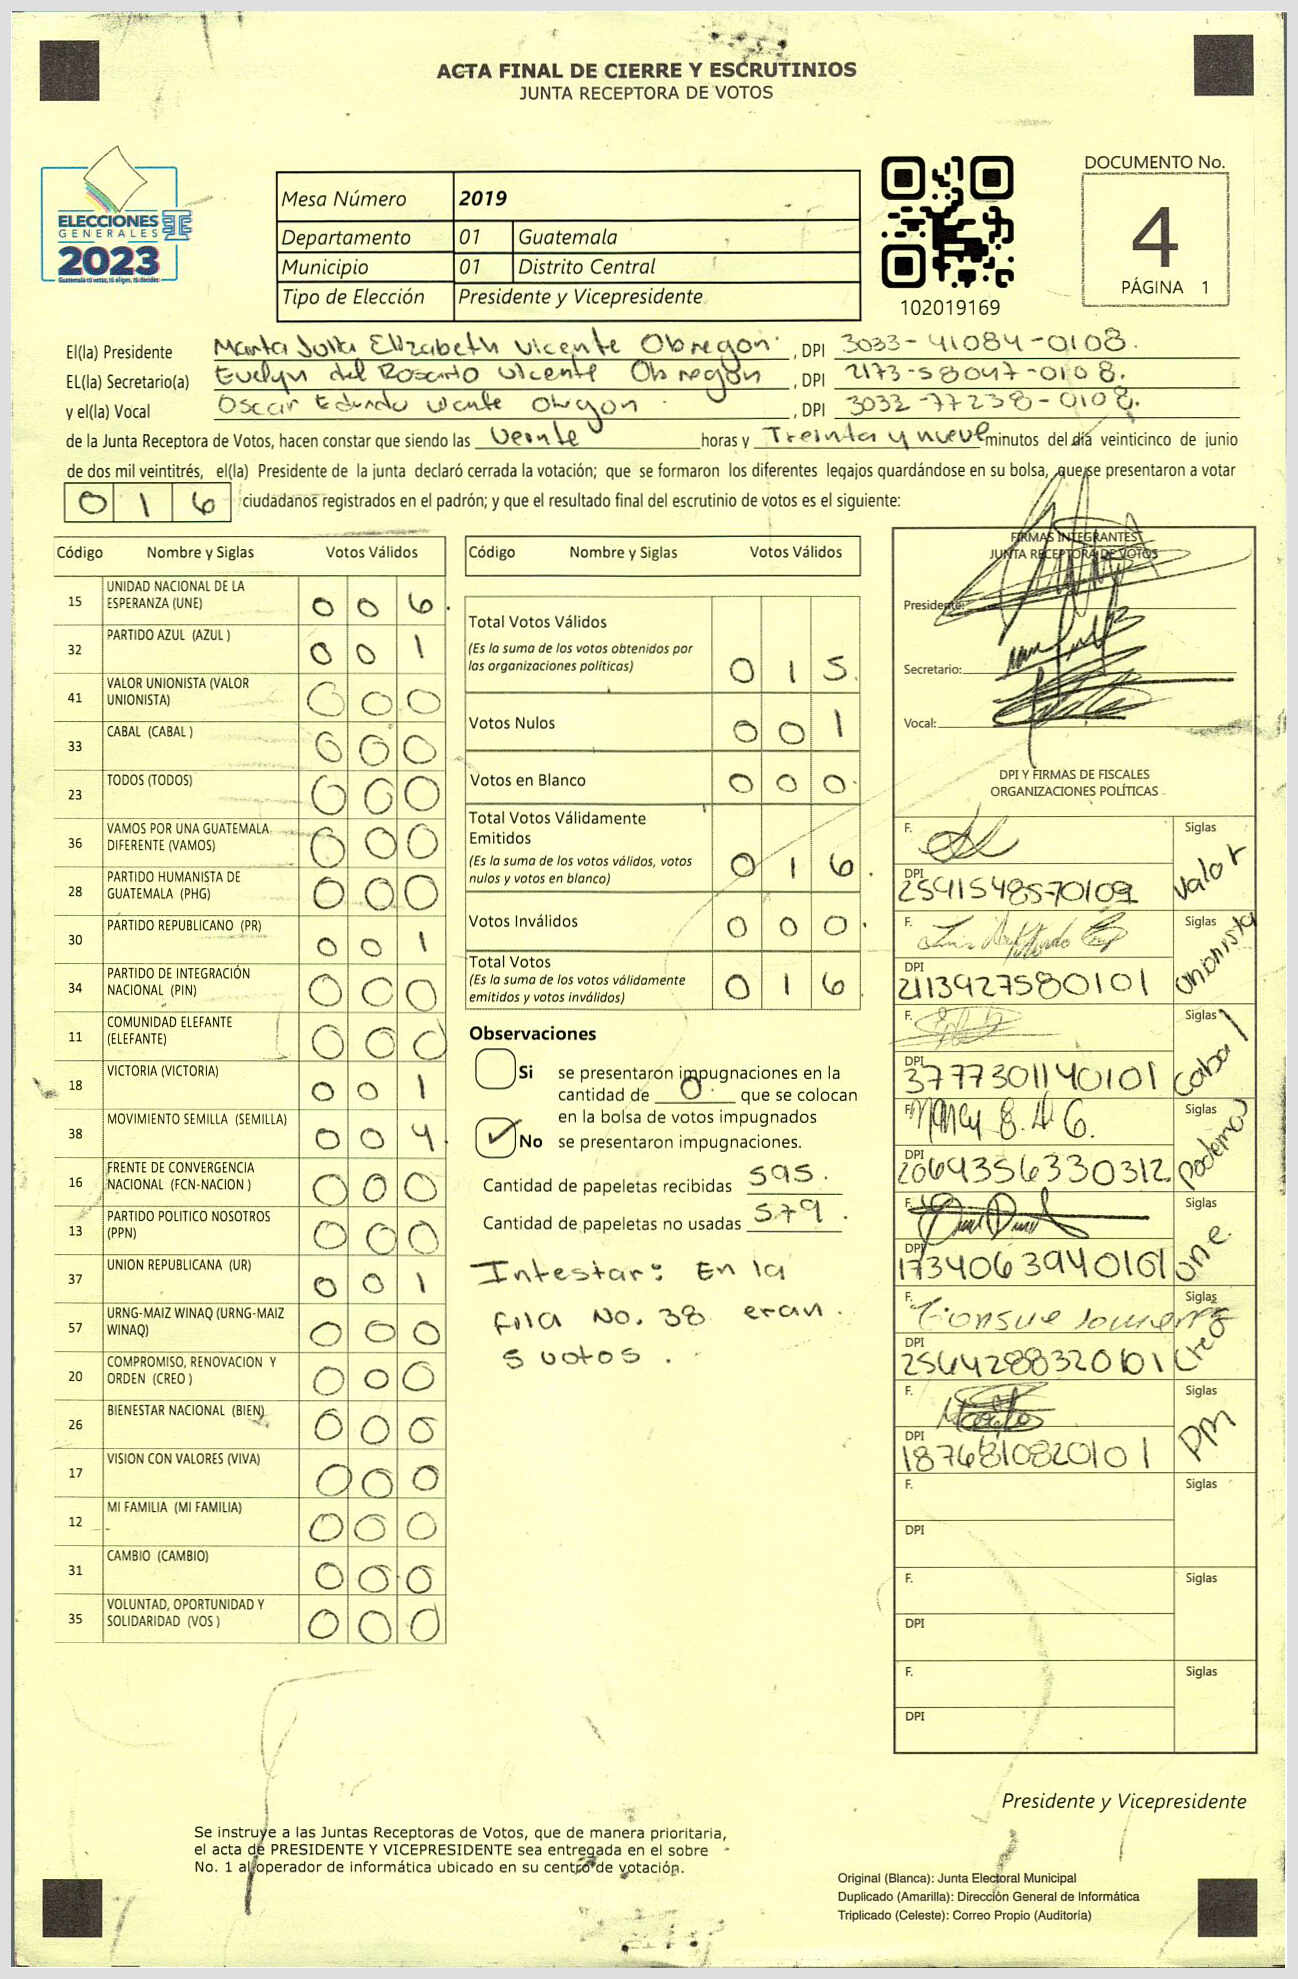 ACTA FINAL DE CIERRE Y ESCRUTINIOS
JUNTA RECEPTORA DE VOTOS
DOCUMENTO No.
4
PÁGINA 1
ELECCIONES
GENERALES
2023
Guatemala tú votas, tú eliges, tú decides
Mesa Número 2019
Departamento 01 Guatemala
Municipio 01 Distrito Central
Tipo de Elección Presidente y Vicepresidente
102019169
El(la) Presidente Marta Julia Elizabeth Vicente Obregon , DPI 3033-41084-0108.
EL(la) Secretario(a) Evelyn del Rosario Vicente Obregon , DPI 2173-58047-0108.
y el(la) Vocal Oscar , DPI 3032-77238-0108.
de la Junta Receptora de Votos, hacen constar que siendo las Veinte horas y Treinta y nueve minutos del día veinticinco de junio
de dos mil veintitrés, el(la) Presidente de la junta declaró cerrada la votación; que se formaron los diferentes legajos quardándose en su bolsa, que se presentaron a votar
0 1 6 ciudadanos registrados en el padrón; y que el resultado final del escrutinio de votos es el siguiente:
Código Nombre y Siglas Votos Válidos
15 UNIDAD NACIONAL DE LA
ESPERANZA (UNE) 0 0 6.
32 PARTIDO AZUL (AZUL ) 0 0 1
41 VALOR UNIONISTA (VALOR
UNIONISTA) 0 0 0
33 CABAL (CABAL ) 0 0 0
23 TODOS (TODOS) 0 0 0
36 VAMOS POR UNA GUATEMALA
DIFERENTE (VAMOS) 0 0 0
28 PARTIDO HUMANISTA DE
GUATEMALA (PHG) 0 0 0
30 PARTIDO REPUBLICANO (PR) 0 0 1
34 PARTIDO DE INTEGRACIÓN
NACIONAL (PIN) 0 0 0
11 COMUNIDAD ELEFANTE
(ELEFANTE) 0 0 0
18 VICTORIA (VICTORIA) 0 0 1
38 MOVIMIENTO SEMILLA (SEMILLA) 0 0 4.
16 FRENTE DE CONVERGENCIA
NACIONAL (FCN-NACION ) 0 0 0
13 PARTIDO POLITICO NOSOTROS
(PPN) 0 0 0
37 UNION REPUBLICANA (UR) 0 0 1
57 URNG-MAIZ WINAQ (URNG-MAIZ
WINAQ) 0 0 0
20 COMPROMISO, RENOVACION Y
ORDEN (CREO ) 0 0 0
26 BIENESTAR NACIONAL (BIEN) 0 0 0
17 VISION CON VALORES (VIVA) 0 0 0
12 MI FAMILIA (MI FAMILIA) 0 0 0
31 CAMBIO (CAMBIO) 0 0 0
35 VOLUNTAD, OPORTUNIDAD Y
SOLIDARIDAD (VOS ) 0 0 0
Código Nombre y Siglas Votos Válidos
Total Votos Válidos
(Es la suma de los votos obtenidos por
las organizaciones políticas) 0 1 5.
Votos Nulos 0 0 1
Votos en Blanco 0 0 0.
Total Votos Válidamente
Emitidos
(Es la suma de los votos válidos, votos
nulos y votos en blanco) 0 1 6.
Votos Inválidos 0 0 0.
Total Votos
(Es la suma de los votos válidamente
emitidos y votos inválidos) 0 1 6.
Observaciones
Si se presentaron impugnaciones en la
cantidad de 0. que se colocan
en la bolsa de votos impugnados
No se presentaron impugnaciones.
Cantidad de papeletas recibidas 595.
Cantidad de papeletas no usadas 579.
Intestar: En la
fila No. 38 eran.
5 votos.
FIRMAS INTEGRANTES
JUNTA RECEPTORA DE VOTOS
Presidente:
Secretario:
Vocal:
DPI Y FIRMAS DE FISCALES
ORGANIZACIONES POLÍTICAS
F. Siglas Valor
DPI 2591548570109
F. Siglas Unionista
DPI 2113927580101
F. Siglas Cabal
DPI 3777301140101
F. Nancy Siglas Podemos
DPI 2064356330312
F. Siglas une.
DPI 1734063940101
F. Siglas Creo
DPI 2564288320101
F. Siglas
DPI 1876810820101
F. Siglas
DPI
F. Siglas
DPI
F. Siglas
DPI
Presidente y Vicepresidente
Se instruye a las Juntas Receptoras de Votos, que de manera prioritaria,
el acta de PRESIDENTE Y VICEPRESIDENTE sea entregada en el sobre
No. 1 al operador de informática ubicado en su centro de votación.
Original (Blanca): Junta Electoral Municipal
Duplicado (Amarilla): Dirección General de Informática
Triplicado (Celeste): Correo Propio (Auditoría)